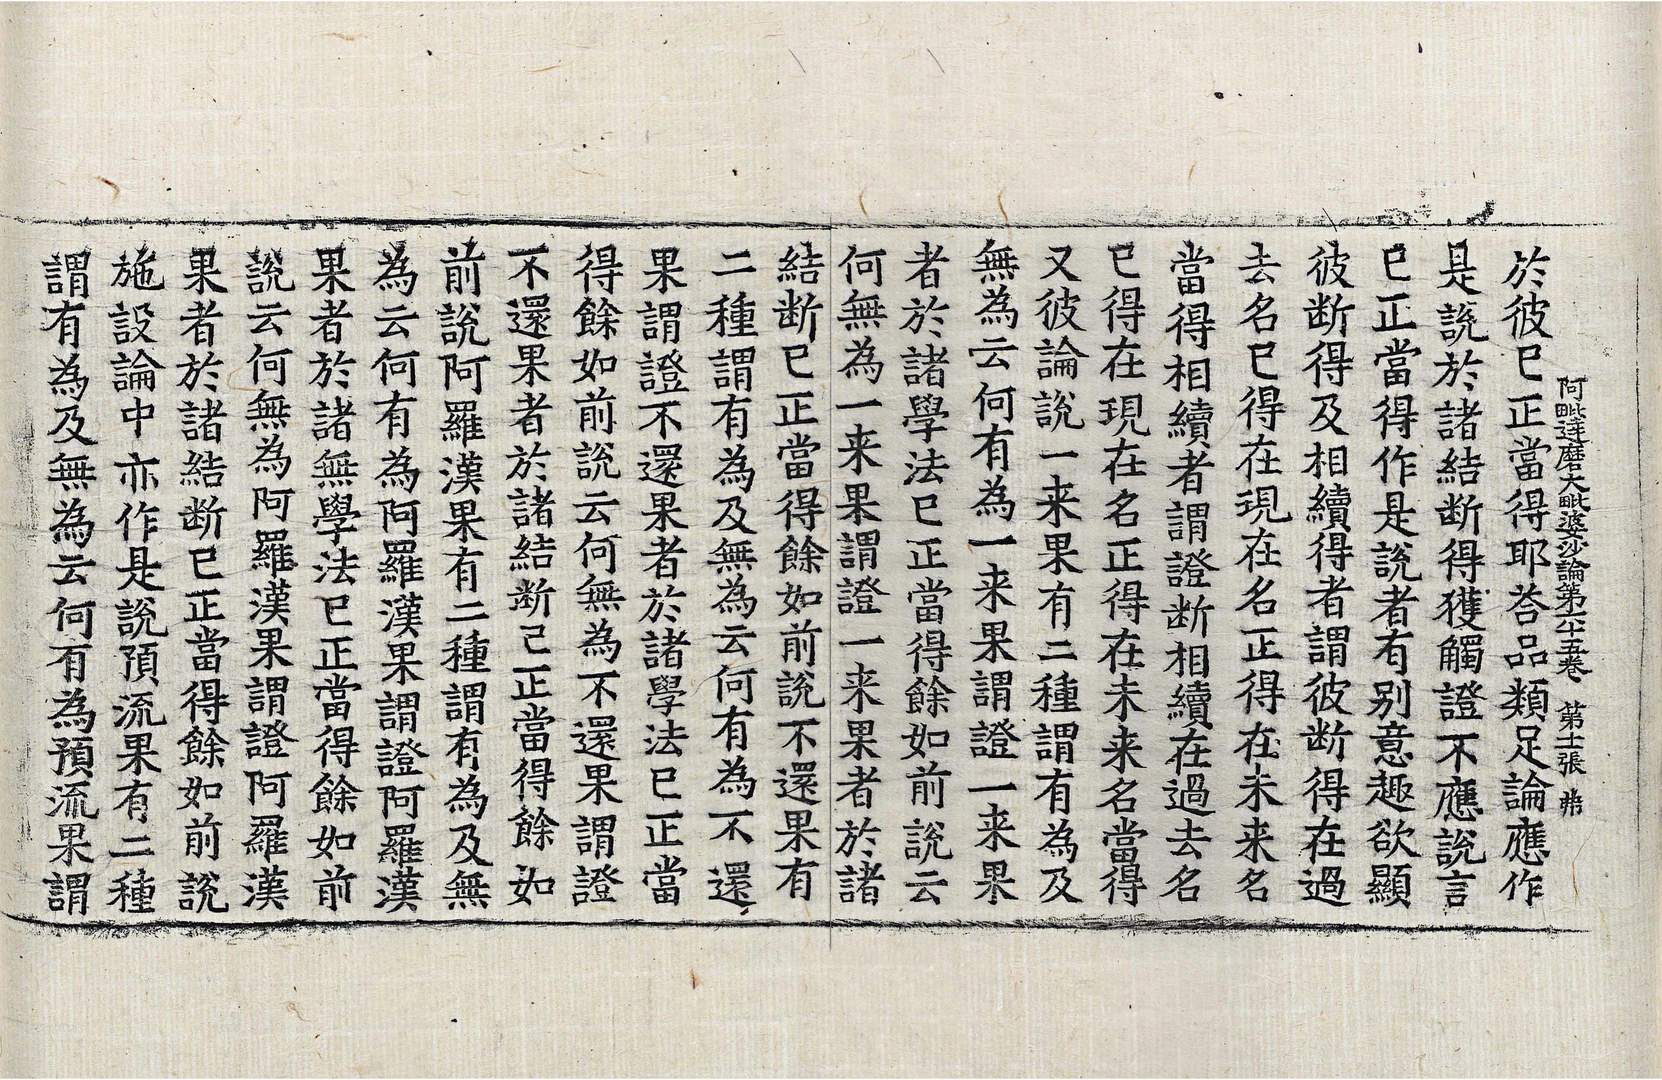 阿毗達磨大毗婆沙論第六十五卷 第十二張 弗
於彼已正當得耶荅品類足論應作
是說於諸結断得獲觸證不應說言
已正當得作是說者有别意趣欲顯
彼断得及相續得者謂彼断得在過
去名已得在現在名正得在未来名
當得相續者謂證断相續在過去名
已得在現在名正得在未来名當得
又彼論說一来果有二種謂有為及
無為云何有為一来果謂證一来果
者於諸學法已正當得餘如前說云
何無為一来果謂證一来果者於諸
結断已正當得餘如前說不還果有
二種謂有為及無為云何有為不還
果謂證不還果者於諸學法已正當
得餘如前說云何無為不還果謂證
不還果者於諸結断已正當得餘如
前說阿羅漢果有二種謂有為及無
為云何有為阿羅漢果謂證阿羅漢
果者於諸無學法已正當得餘如前
說云何無為阿羅漢果謂證阿羅漢
果者於諸結断已正當得餘如前說
施設論中亦作是說預流果有二種
謂有為及無為云何有為預流果謂